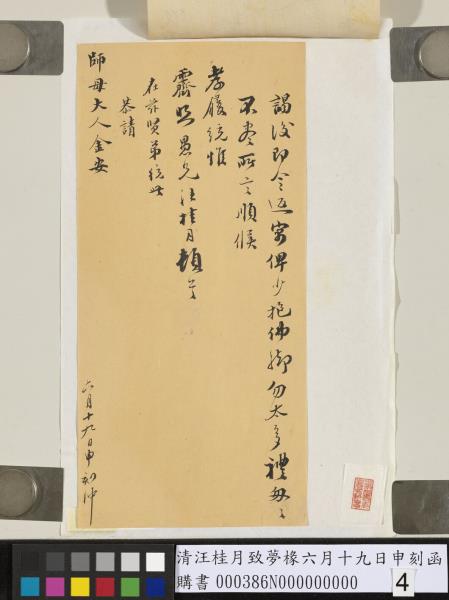 謁後即令返寓俾少抱佛腳勿太多禮毋々
不盡所言順候
孝履統惟
霽照愚兄汪桂月頓首
在茲賢弟統此
恭請
師母大人金安
六月十九日申刻沖
清汪桂月致夢椽六月十九日申刻函
購書 000386N000000000
4